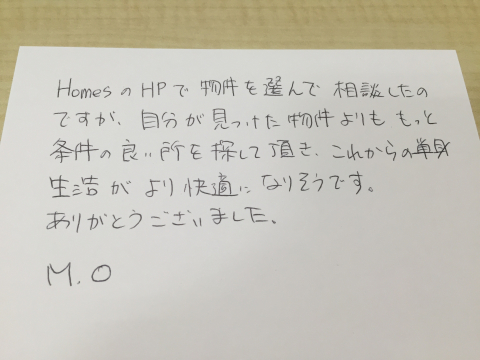 HomesのHPで物件を選んで相談したの
ですが、自分が見つけた物件よりももっと
条件の良い所を探して頂き、これからの単身
生活がより快適になりそうです。
ありがとうございました。
M.O